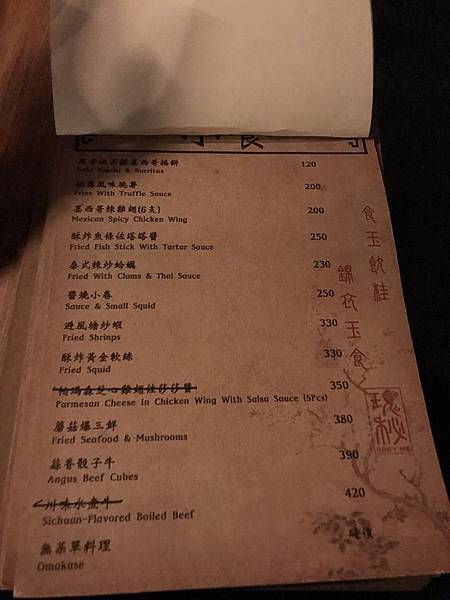 食
墨西哥捲餅 120
Kimchi & Burritos
松露風味脆薯 200
Fries With Truffle Sauce
墨西哥辣雞翅(6支) 200
Mexican Spicy Chicken Wing
酥炸魚條佐塔塔醬 250
Fried Fish Stick With Tartar Sauce
泰式辣炒蛤蠣 230
Fried With Clams & Thai Sauce
醬燒小卷 250
Sauce & Small Squid
避風塘炒蝦 330
Fried Shrinps
酥炸黃金軟絲 330
Fried Squid
帕瑪森芝心雞翅佐莎莎醬 350
Parmesan Cheese In Chicken Wing With Salsa Sauce (5Pcs)
蘑菇爆三鮮 380
Fried Seafood & Mushrooms
蒜香骰子牛 390
Angus Beef Cubes
川味水煮牛 420
Sichuan-Flavored Boiled Beef
無菜單料理 時價
Omakase
食玉飲桂
錦衣玉食
瑰秘